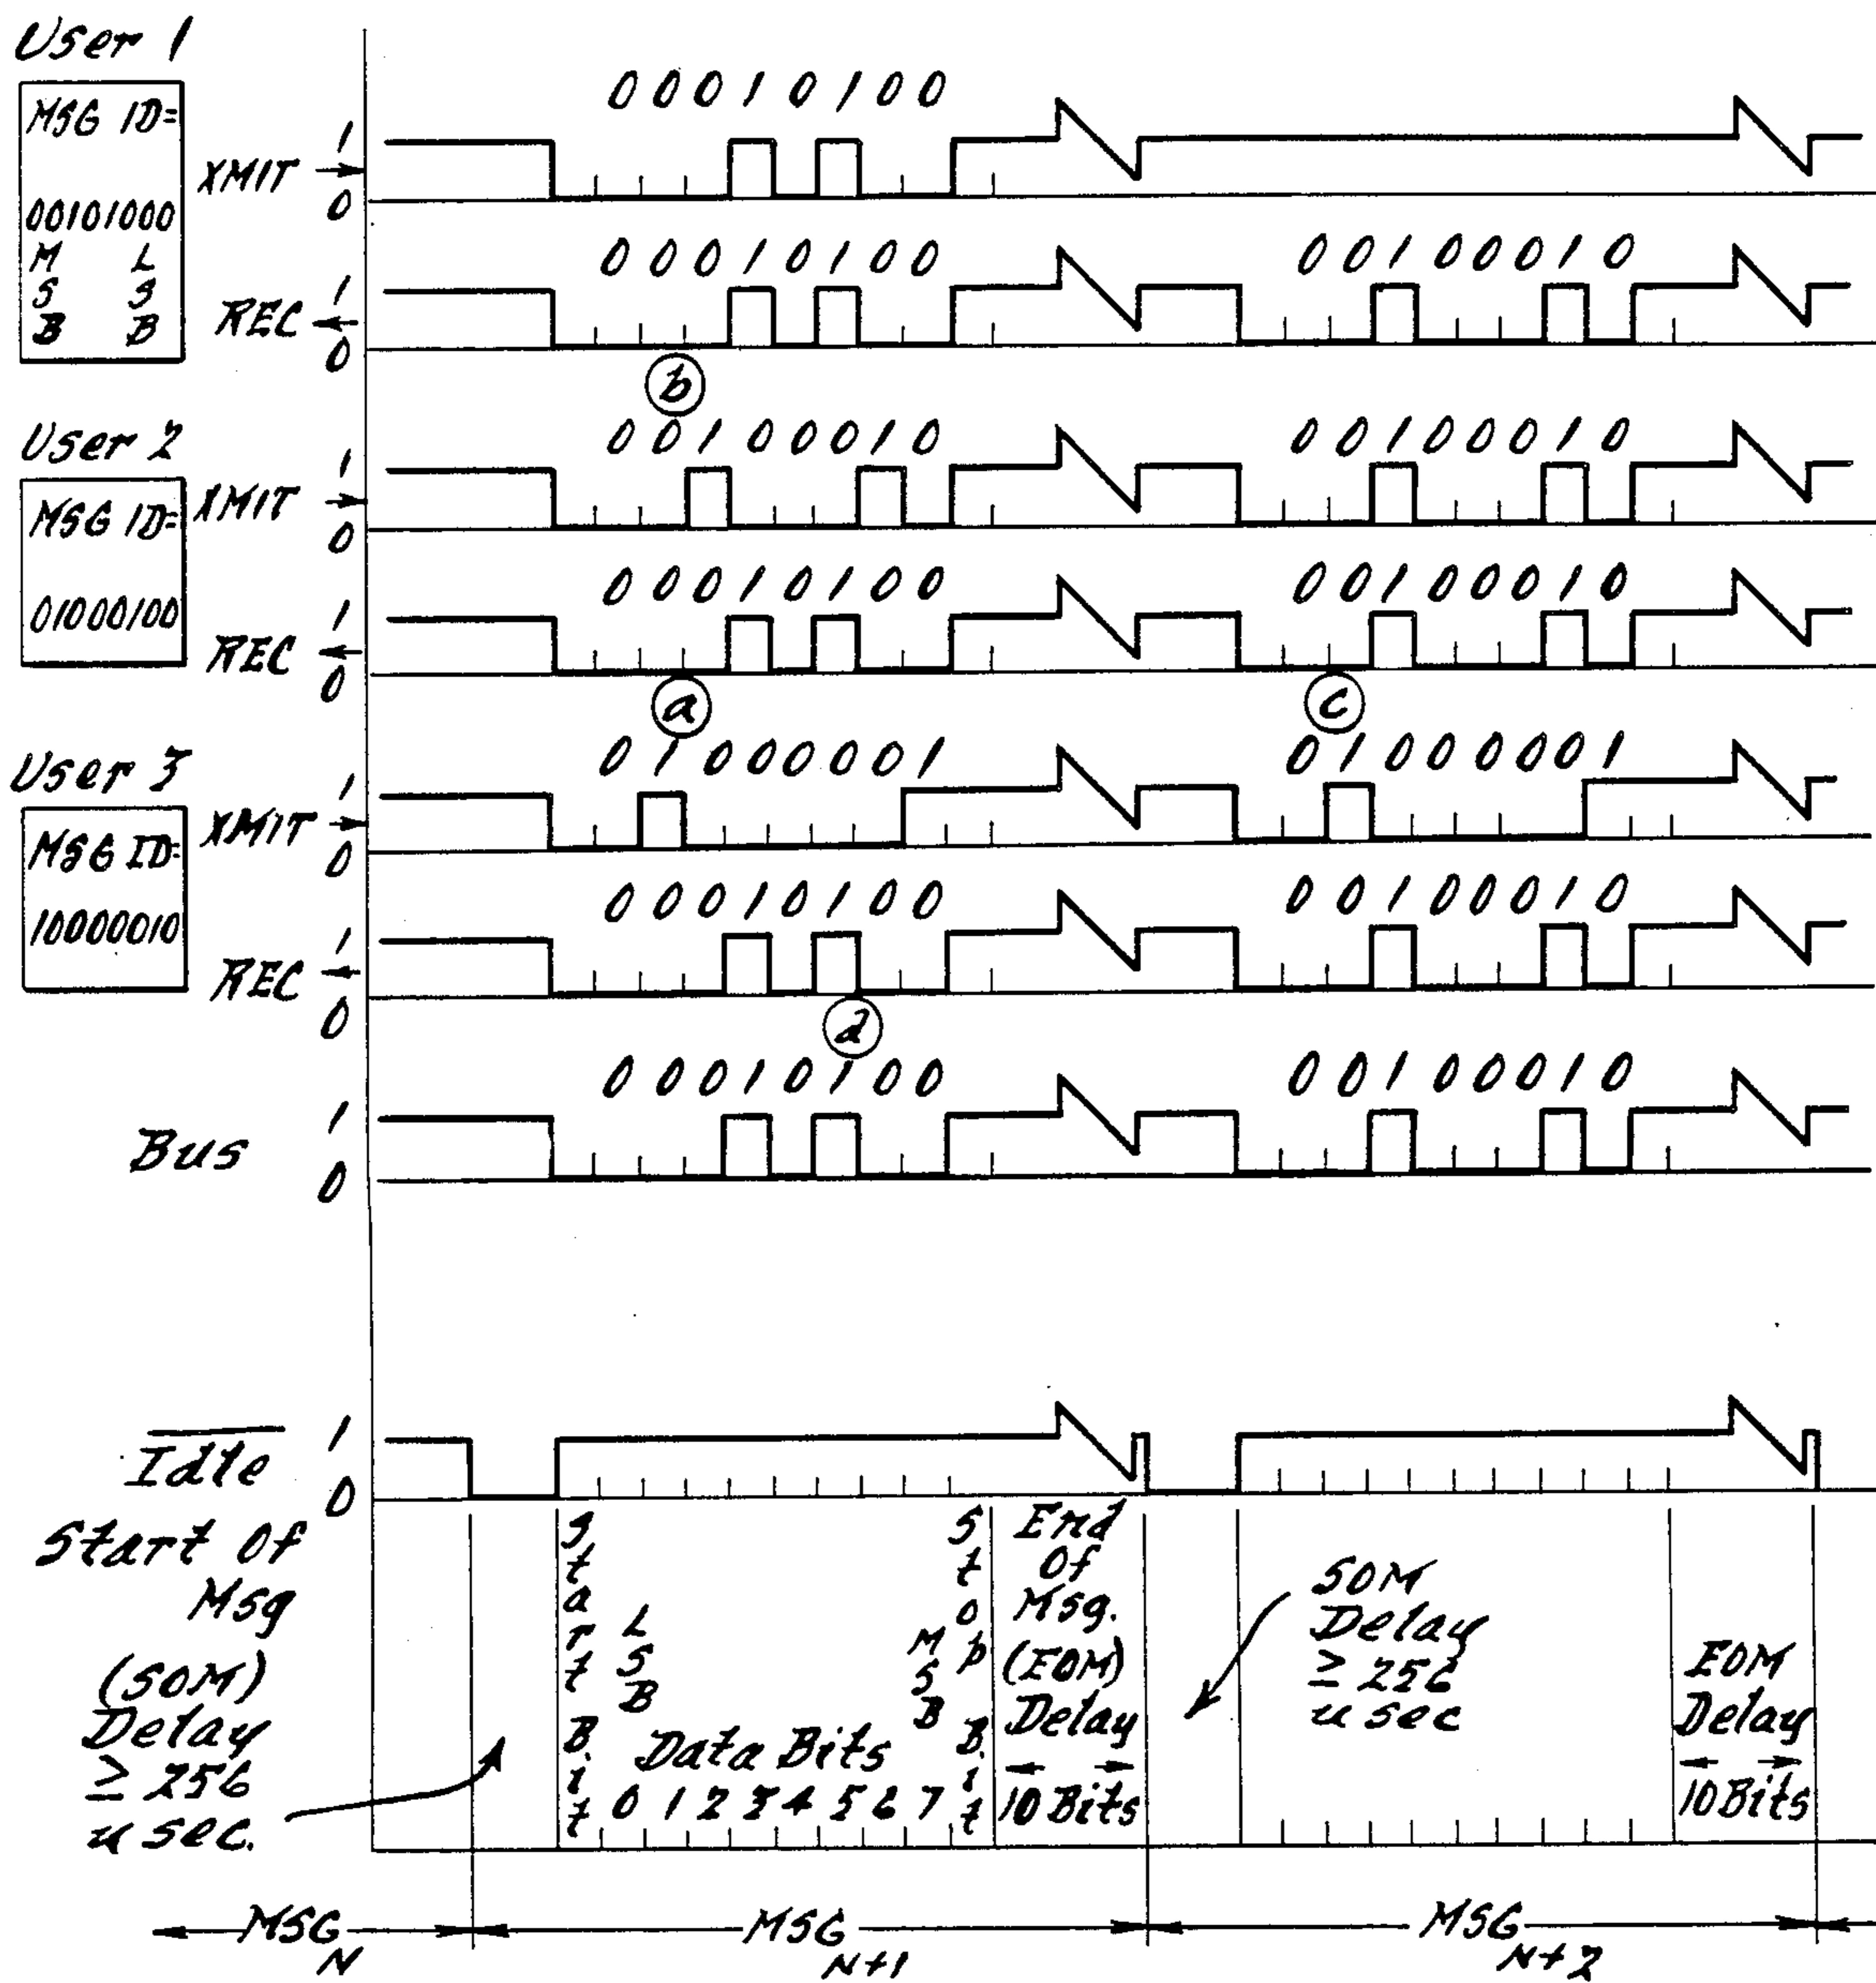 User 1
MSG ID=
00101000
M L
S S
B B
XMIT
1
0
00010100
REC
1
0
00010100
00100010
b
User 2
MSG ID=
01000100
XMIT
1
0
00100010
00100010
REC
1
0
00010100
00100010
a
c
User 3
MSG ID=
10000010
XMIT
1
0
01000001
01000001
REC
1
0
00010100
00100010
d
Bus
1
0
00010100
00100010
Idle
1
0
Start Of
Msg
(SOM)
Delay
≥ 256
u sec.
Start Bit
LSB
MSB
Data Bits
0 1 2 3 4 5 6 7
Stop Bit
End
Of
Msg.
(EOM)
Delay
10 Bits
SOM
Delay
≥ 256
u sec
EOM
Delay
10 Bits
MSG
N
MSG
N+1
MSG
N+2